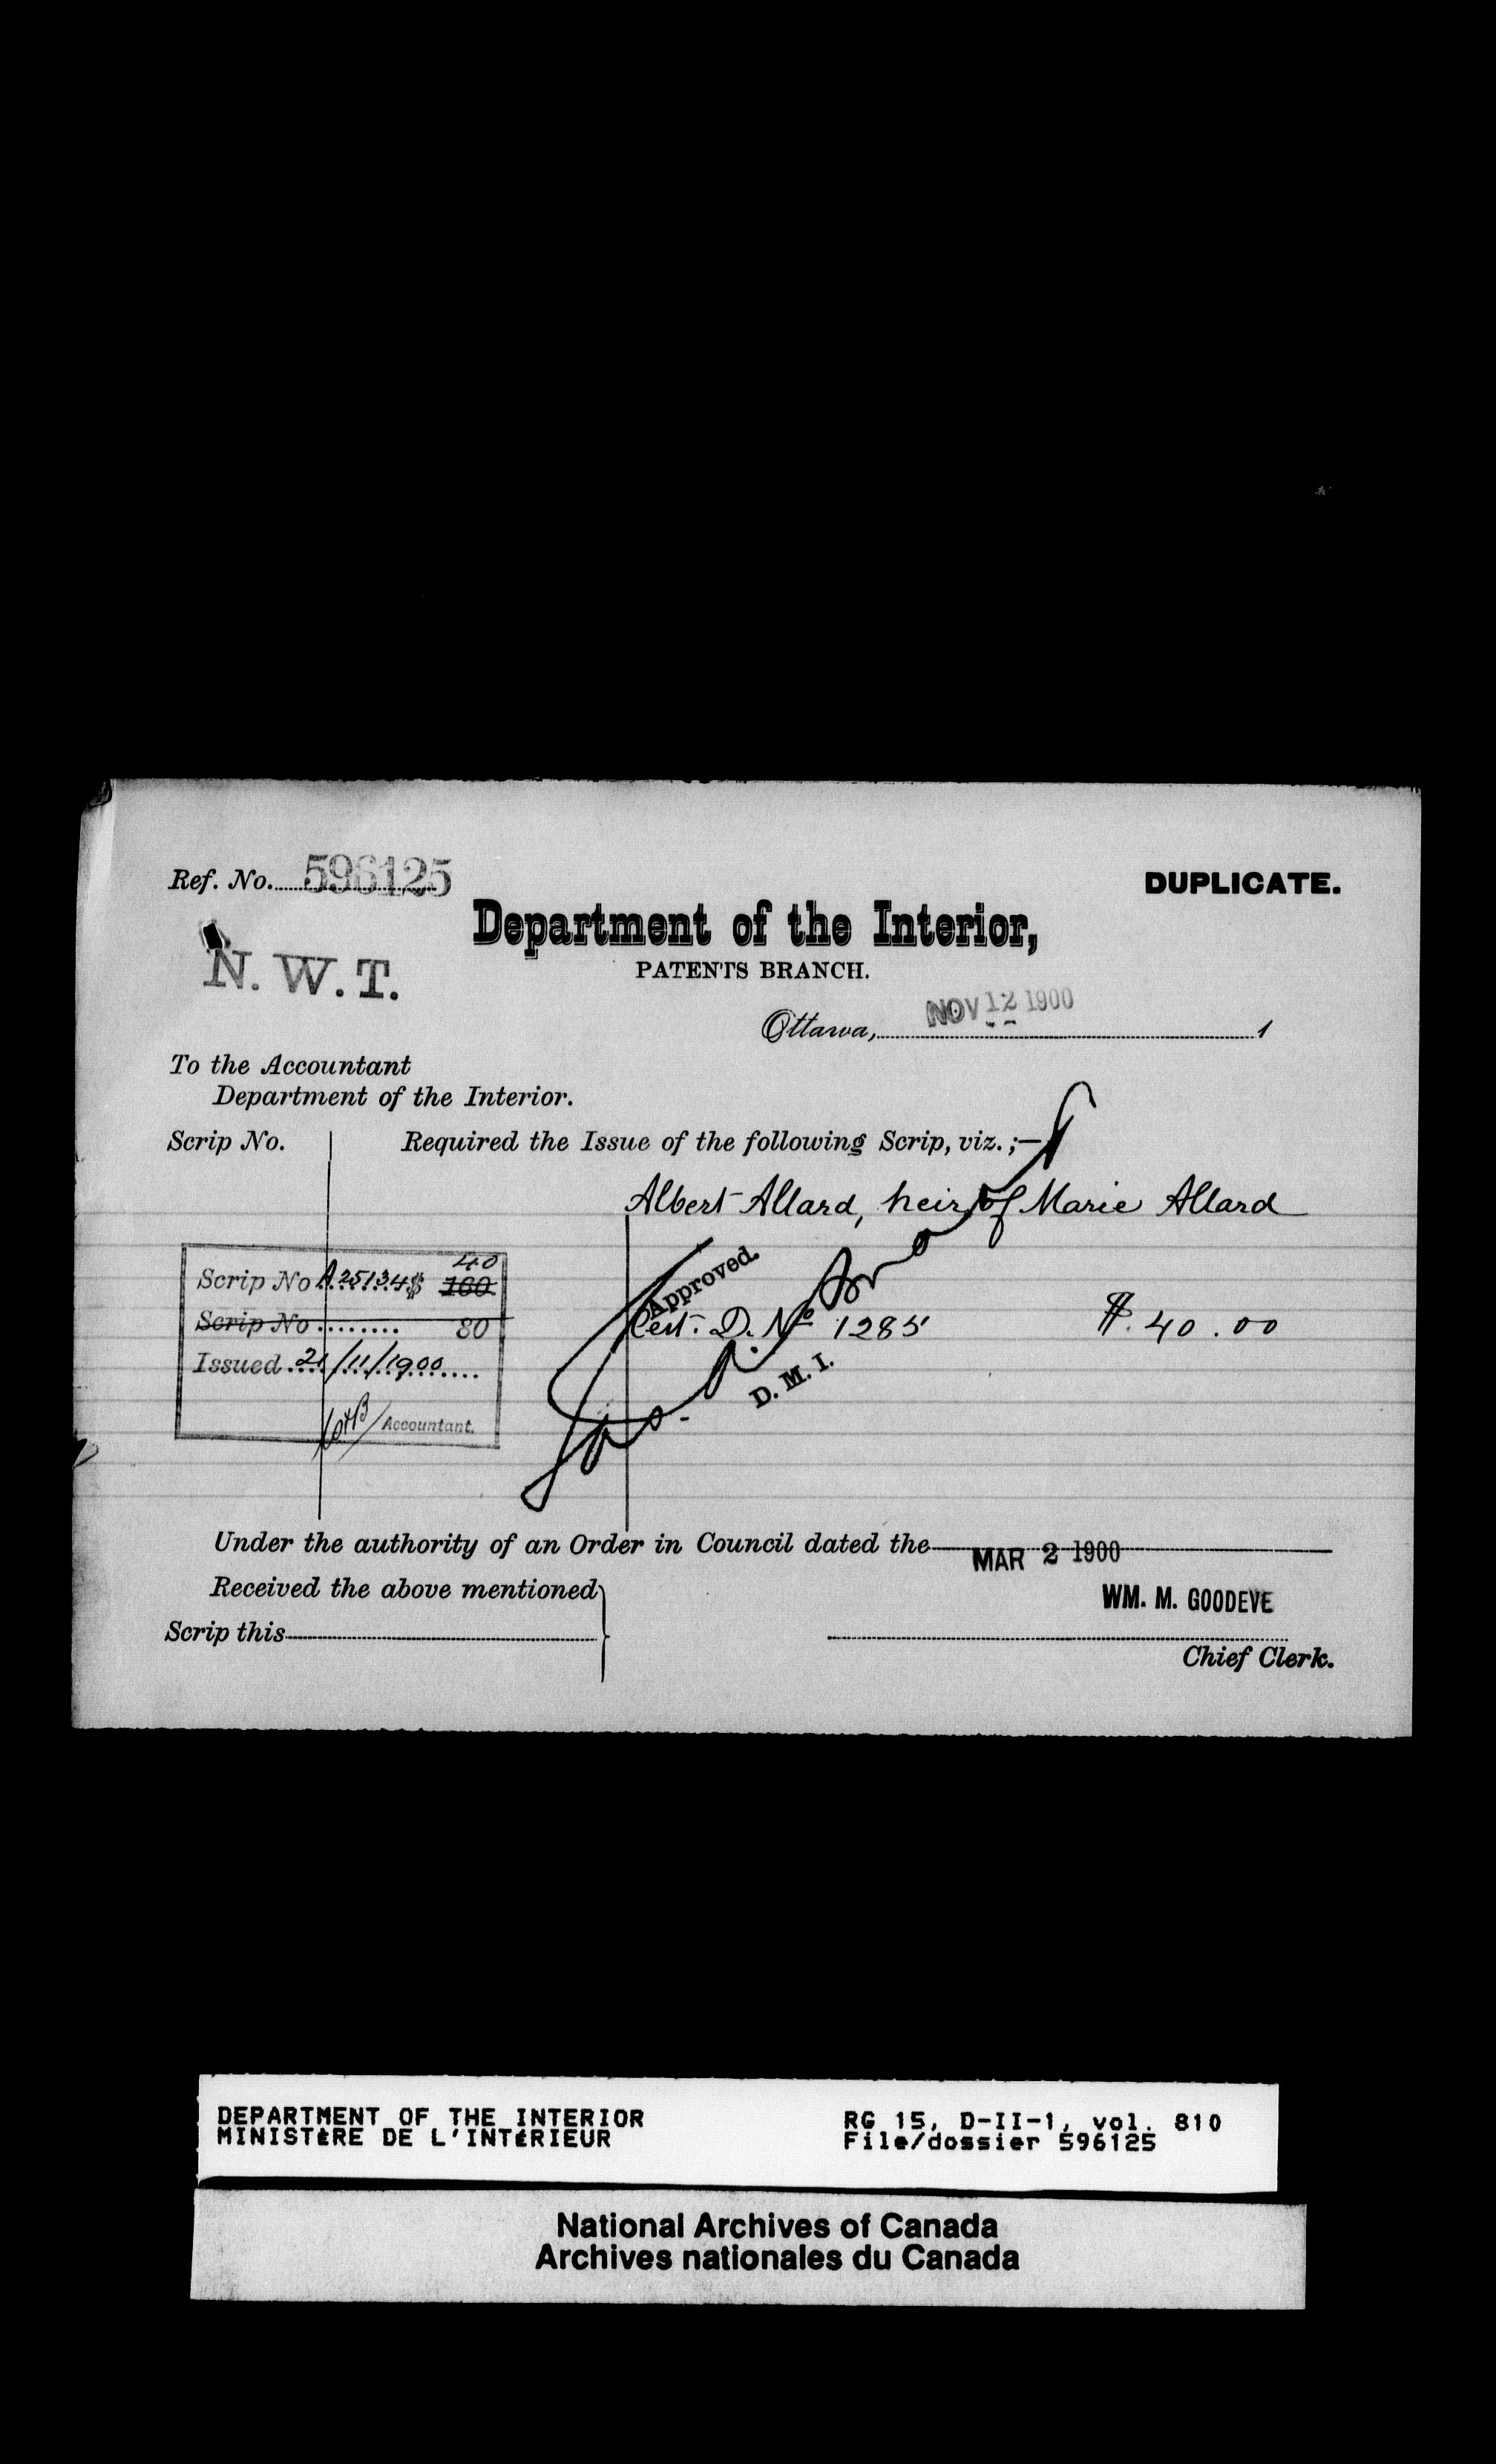 Ref. No. 596125
DUPLICATE.
Department of the Interior,
N. W. T.
PATENTS BRANCH.
Ottawa, NOV 12 1900 1
To the Accountant
Department of the Interior.
Scrip No. Required the Issue of the following Scrip, viz. ;—
Albert Allard, heir of Marie Allard
Approved
40
Scrip No A.25134 $ 160
Scrip No ........ 80
Cert. D. No 1285 $. 40.00
Issued 21/11/1900
D. M. I.
Jas. A.
Accountant.
Under the authority of an Order in Council dated the MAR 2 1900
Received the above mentioned
WM. M. GOODEVE
Scrip this
Chief Clerk.
DEPARTMENT OF THE INTERIOR
MINISTÈRE DE L'INTÉRIEUR
RG 15, D-II-1, vol. 810
File/dossier 596125
National Archives of Canada
Archives nationales du Canada